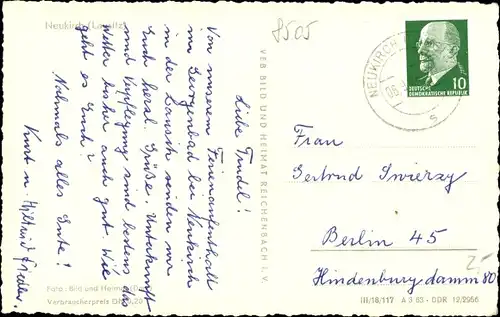 Neukirch (Lausitz)
8505
Liebe Trudel!
Von unserem Ferienaufenthalt
im Georgenbad bei Neukirch
in der Lausitz senden wir
Euch herzl. Grüße. Unterkunft
und Verpflegung sind bestens, das
Wetter bisher auch gut. Wie
geht es Euch?
Nochmals alles Gute!
Kurt u. Hiltrud
Foto: Bild und Heimat
Verbraucherpreis
VEB BILD UND HEIMAT REICHENBACH I. V.
NEUKIRCH
DEUTSCHE
DEMOKRATISCHE REPUBLIK
10
Frau
Gertrud Swierzy
Berlin 45
Hindenburgdamm 80
2,-
III/18/117 A 9 63 · DDR 12/2956